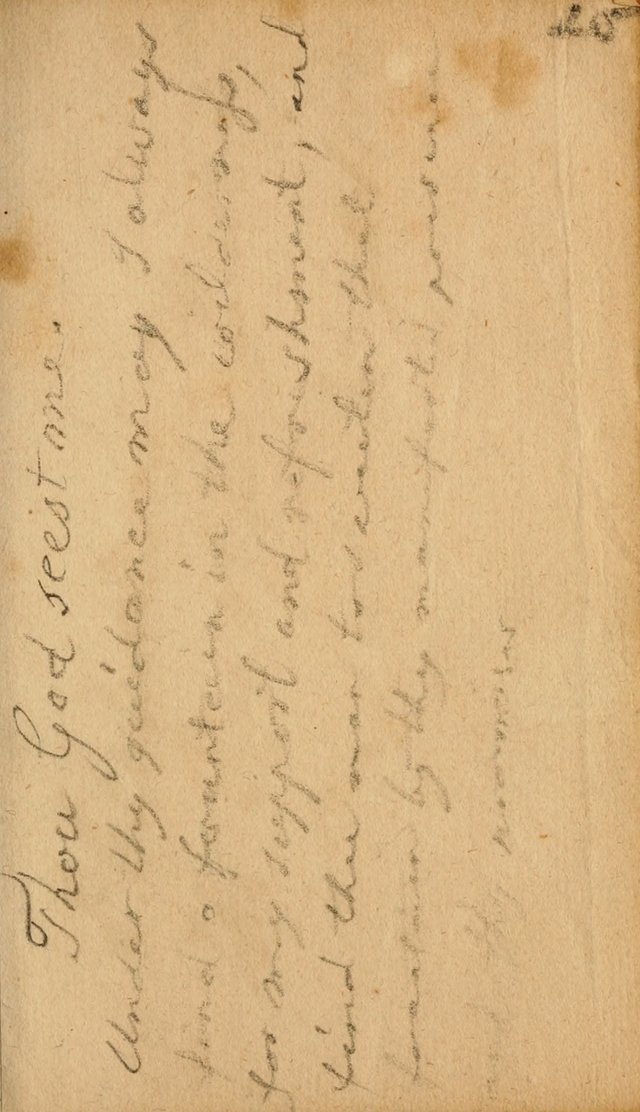 25
Thou God seest me.
Under thy guidance may I always
find a fountain in the wilderness,
for my support and refreshment, and
find thee near to sweeten that
fountain by thy manifest presence
and thy promises